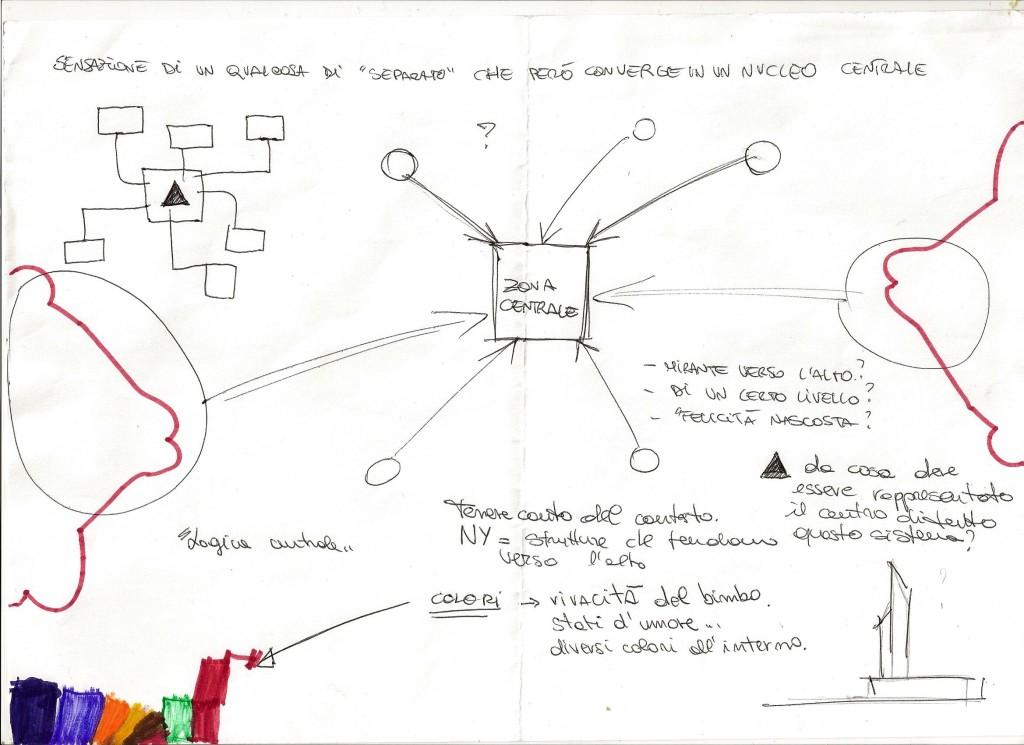 SENSAZIONE DI UN QUALCOSA DI "SEPARATO" CHE PERÒ CONVERGE IN UN NUCLEO CENTRALE
?
ZONA
CENTRALE
- MIRANTE VERSO L'ALTO?
- DI UN CERTO LIVELLO?
- "FELICITÀ NASCOSTA?
da cosa deve
essere rappresentato
il centro di tutto
questo sistema?
Tenere conto del contesto.
NY = strutture che tendono
verso l'alto
"Logica centrale"
COLORI → vivacità del bimbo.
stati d'umore...
diversi colori all'interno.
?